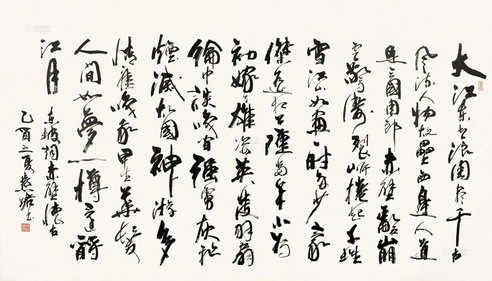 大江東去浪淘盡千古
風流人物故壘西邊人道
是三國周郎赤壁亂崩
雲驚濤裂岸捲起千堆
雪江山如畫一時多少豪
傑遙想公瑾當年小喬
初嫁雄姿英發羽扇
綸巾談笑間檣櫓灰飛
煙滅故國神游多
情應笑我早生華髮
人間如夢一樽還酹
江月
東坡詞赤壁懷古
乙酉之夏